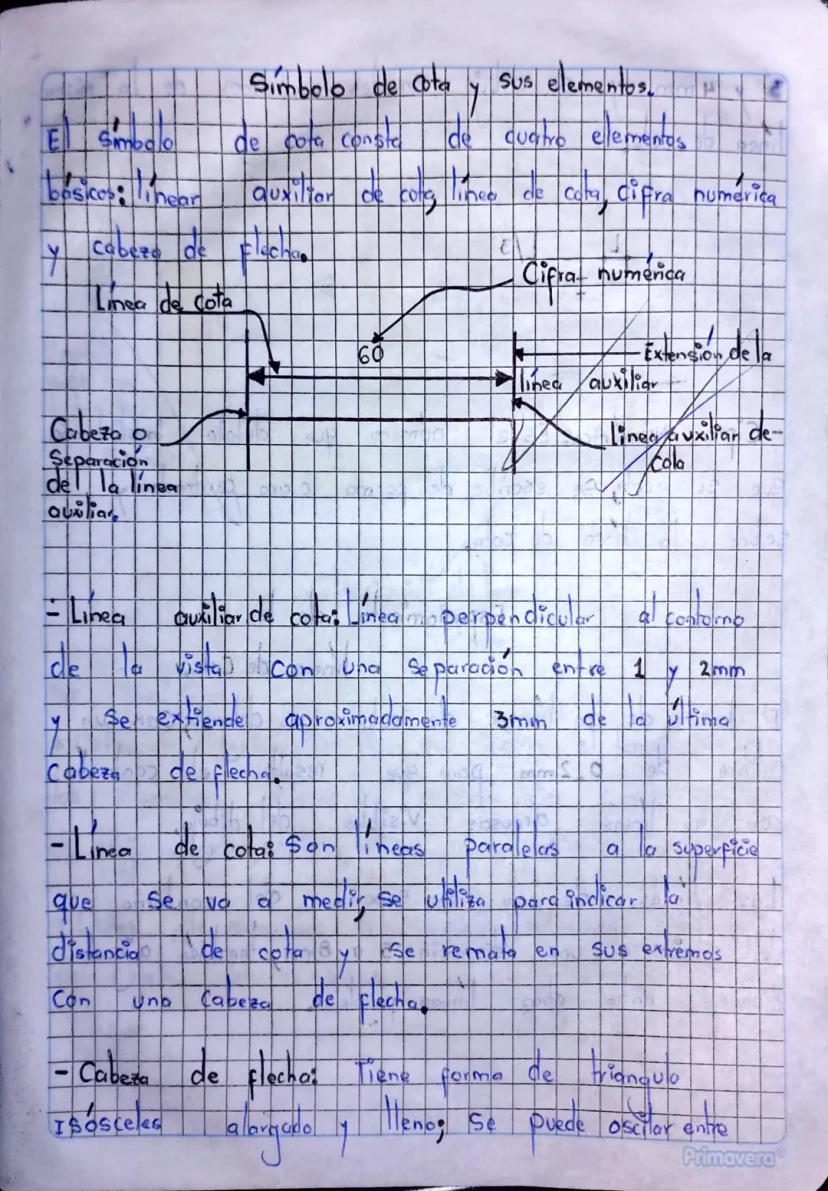 Símbolo de cota y sus elementos.
El símbolo de cota consta de cuatro elementos
básicos: línear auxiliar de cota, línea de cota, cifra numérica
y cabeza de flecha.
Cifra numérica
Línea de cota
60
Extensión de la
línea auxiliar
Cabeza o
separación
de la línea
auxiliar.
línea auxiliar de
cota
- Línea auxiliar de cota: Línea perpendicular al contorno
de la vista con una separación entre 1 y 2mm
y se extiende aproximadamente 3mm de la última
cabeza de flecha.
- Línea de cota: Son líneas paralelas a la superficie
que se va a medir, se utiliza para indicar la
distancia de cota y se remata en sus extremos
con una cabeza de flecha.
- Cabeza de flecha: Tiene forma de triangulo
isósceles alargado y lleno; se puede oscilar entre
Primavera